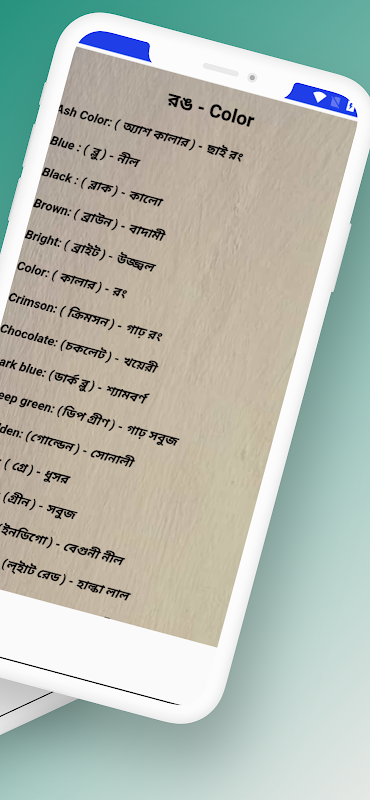 রঙ - Color
Ash Color: ( অ্যাশ কালার ) - ছাই রং
Blue : ( ব্লু ) - নীল
Black : ( ব্লাক ) - কালো
Brown: ( ব্রাউন ) - বাদামী
Bright: ( ব্রাইট ) - উজ্জ্বল
Color: ( কালার ) - রং
Crimson: ( ক্রিমসন ) - গাঢ় রং
Chocolate: (চকলেট ) - খয়েরী
ark blue: (ডার্ক ব্লু ) - শ্যামবর্ণ
eep green: (ডিপ গ্রীণ ) - গাঢ় সবুজ
lden: (গোল্ডেন ) - সোনালী
: ( গ্রে ) - ধুসর
(গ্রীন ) - সবুজ
(ইনডিগো ) - বেগুনী নীল
(ল্ইাট রেড ) - হাল্কা লাল